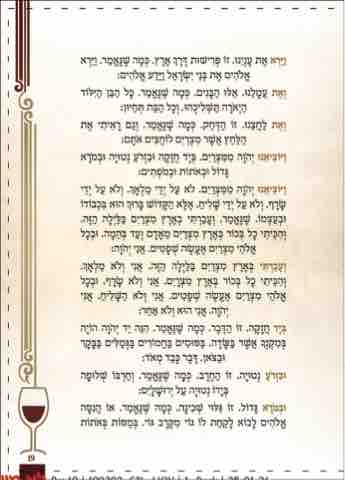 וַיַּרְא אֶת עָנְיֵנוּ. זוֹ פְּרִישׁוּת דֶּרֶךְ אֶרֶץ. כְּמָה שֶׁנֶּאֱמַר. וַיַּרְא
אֱלֹהִים אֶת בְּנֵי יִשְׂרָאֵל וַיֵּדַע אֱלֹהִים:
וְאֶת עֲמָלֵנוּ. אֵלּוּ הַבָּנִים. כְּמָה שֶׁנֶּאֱמַר. כָּל הַבֵּן הַיִּלּוֹד
הַיְאֹרָה תַּשְׁלִיכֻהוּ, וְכָל הַבַּת תְּחַיּוּן:
וְאֶת לַחֲצֵנוּ. זוֹ הַדְּחַק. כְּמָה שֶׁנֶּאֱמַר. וְגַם רָאִיתִי אֶת
הַלַּחַץ אֲשֶׁר מִצְרַיִם לוֹחֲצִים אֹתָם:
וַיּוֹצִיאֵנוּ יְהֹוָה מִמִּצְרַיִם. בְּיָד חֲזָקָה וּבִזְרֹעַ נְטוּיָה וּבְמֹרָא
גָּדוֹל וּבְאֹתוֹת וּבְמֹפְתִים:
וַיּוֹצִיאֵנוּ יְהֹוָה מִמִּצְרַיִם. לֹא עַל יְדֵי מַלְאָךְ, וְלֹא עַל יְדֵי
שָׂרָף, וְלֹא עַל יְדֵי שָׁלִיחַ, אֶלָּא הַקָּדוֹשׁ בָּרוּךְ הוּא בִּכְבוֹדוֹ
וּבְעַצְמוֹ. שֶׁנֶּאֱמַר, וְעָבַרְתִּי בְאֶרֶץ מִצְרַיִם בַּלַּיְלָה הַזֶּה,
וְהִכֵּיתִי כָל בְּכוֹר בְּאֶרֶץ מִצְרַיִם מֵאָדָם וְעַד בְּהֵמָה, וּבְכָל
אֱלֹהֵי מִצְרַיִם אֶעֱשֶׂה שְׁפָטִים. אֲנִי יְהֹוָה:
וְעָבַרְתִּי בְאֶרֶץ מִצְרַיִם בַּלַּיְלָה הַזֶּה, אֲנִי וְלֹא מַלְאָךְ.
וְהִכֵּיתִי כָל בְּכוֹר בְּאֶרֶץ מִצְרַיִם. אֲנִי וְלֹא שָׂרָף. וּבְכָל
אֱלֹהֵי מִצְרַיִם אֶעֱשֶׂה שְׁפָטִים. אֲנִי וְלֹא הַשָּׁלִיחַ. אֲנִי
יְהֹוָה. אֲנִי הוּא וְלֹא אַחֵר:
בְּיָד חֲזָקָה. זוֹ הַדֶּבֶר. כְּמָה שֶׁנֶּאֱמַר. הִנֵּה יַד יְהֹוָה הוֹיָה
בְּמִקְנְךָ אֲשֶׁר בַּשָּׂדֶה. בַּסּוּסִים בַּחֲמוֹרִים בַּגְּמַלִּים בַּבָּקָר
וּבַצֹּאן, דֶּבֶר כָּבֵד מְאֹד:
וּבִזְרֹעַ נְטוּיָה. זוֹ הַחֶרֶב. כְּמָה שֶׁנֶּאֱמַר. וְחַרְבּוֹ שְׁלוּפָה
בְּיָדוֹ נְטוּיָה עַל יְרוּשָׁלָיִם:
וּבְמֹרָא גָּדוֹל, זוֹ גִּלּוּי שְׁכִינָה. כְּמָה שֶׁנֶּאֱמַר. אוֹ הֲנִסָּה
אֱלֹהִים לָבוֹא לָקַחַת לוֹ גוֹי מִקֶּרֶב גּוֹי. בְּמַסּוֹת בְּאֹתוֹת
19